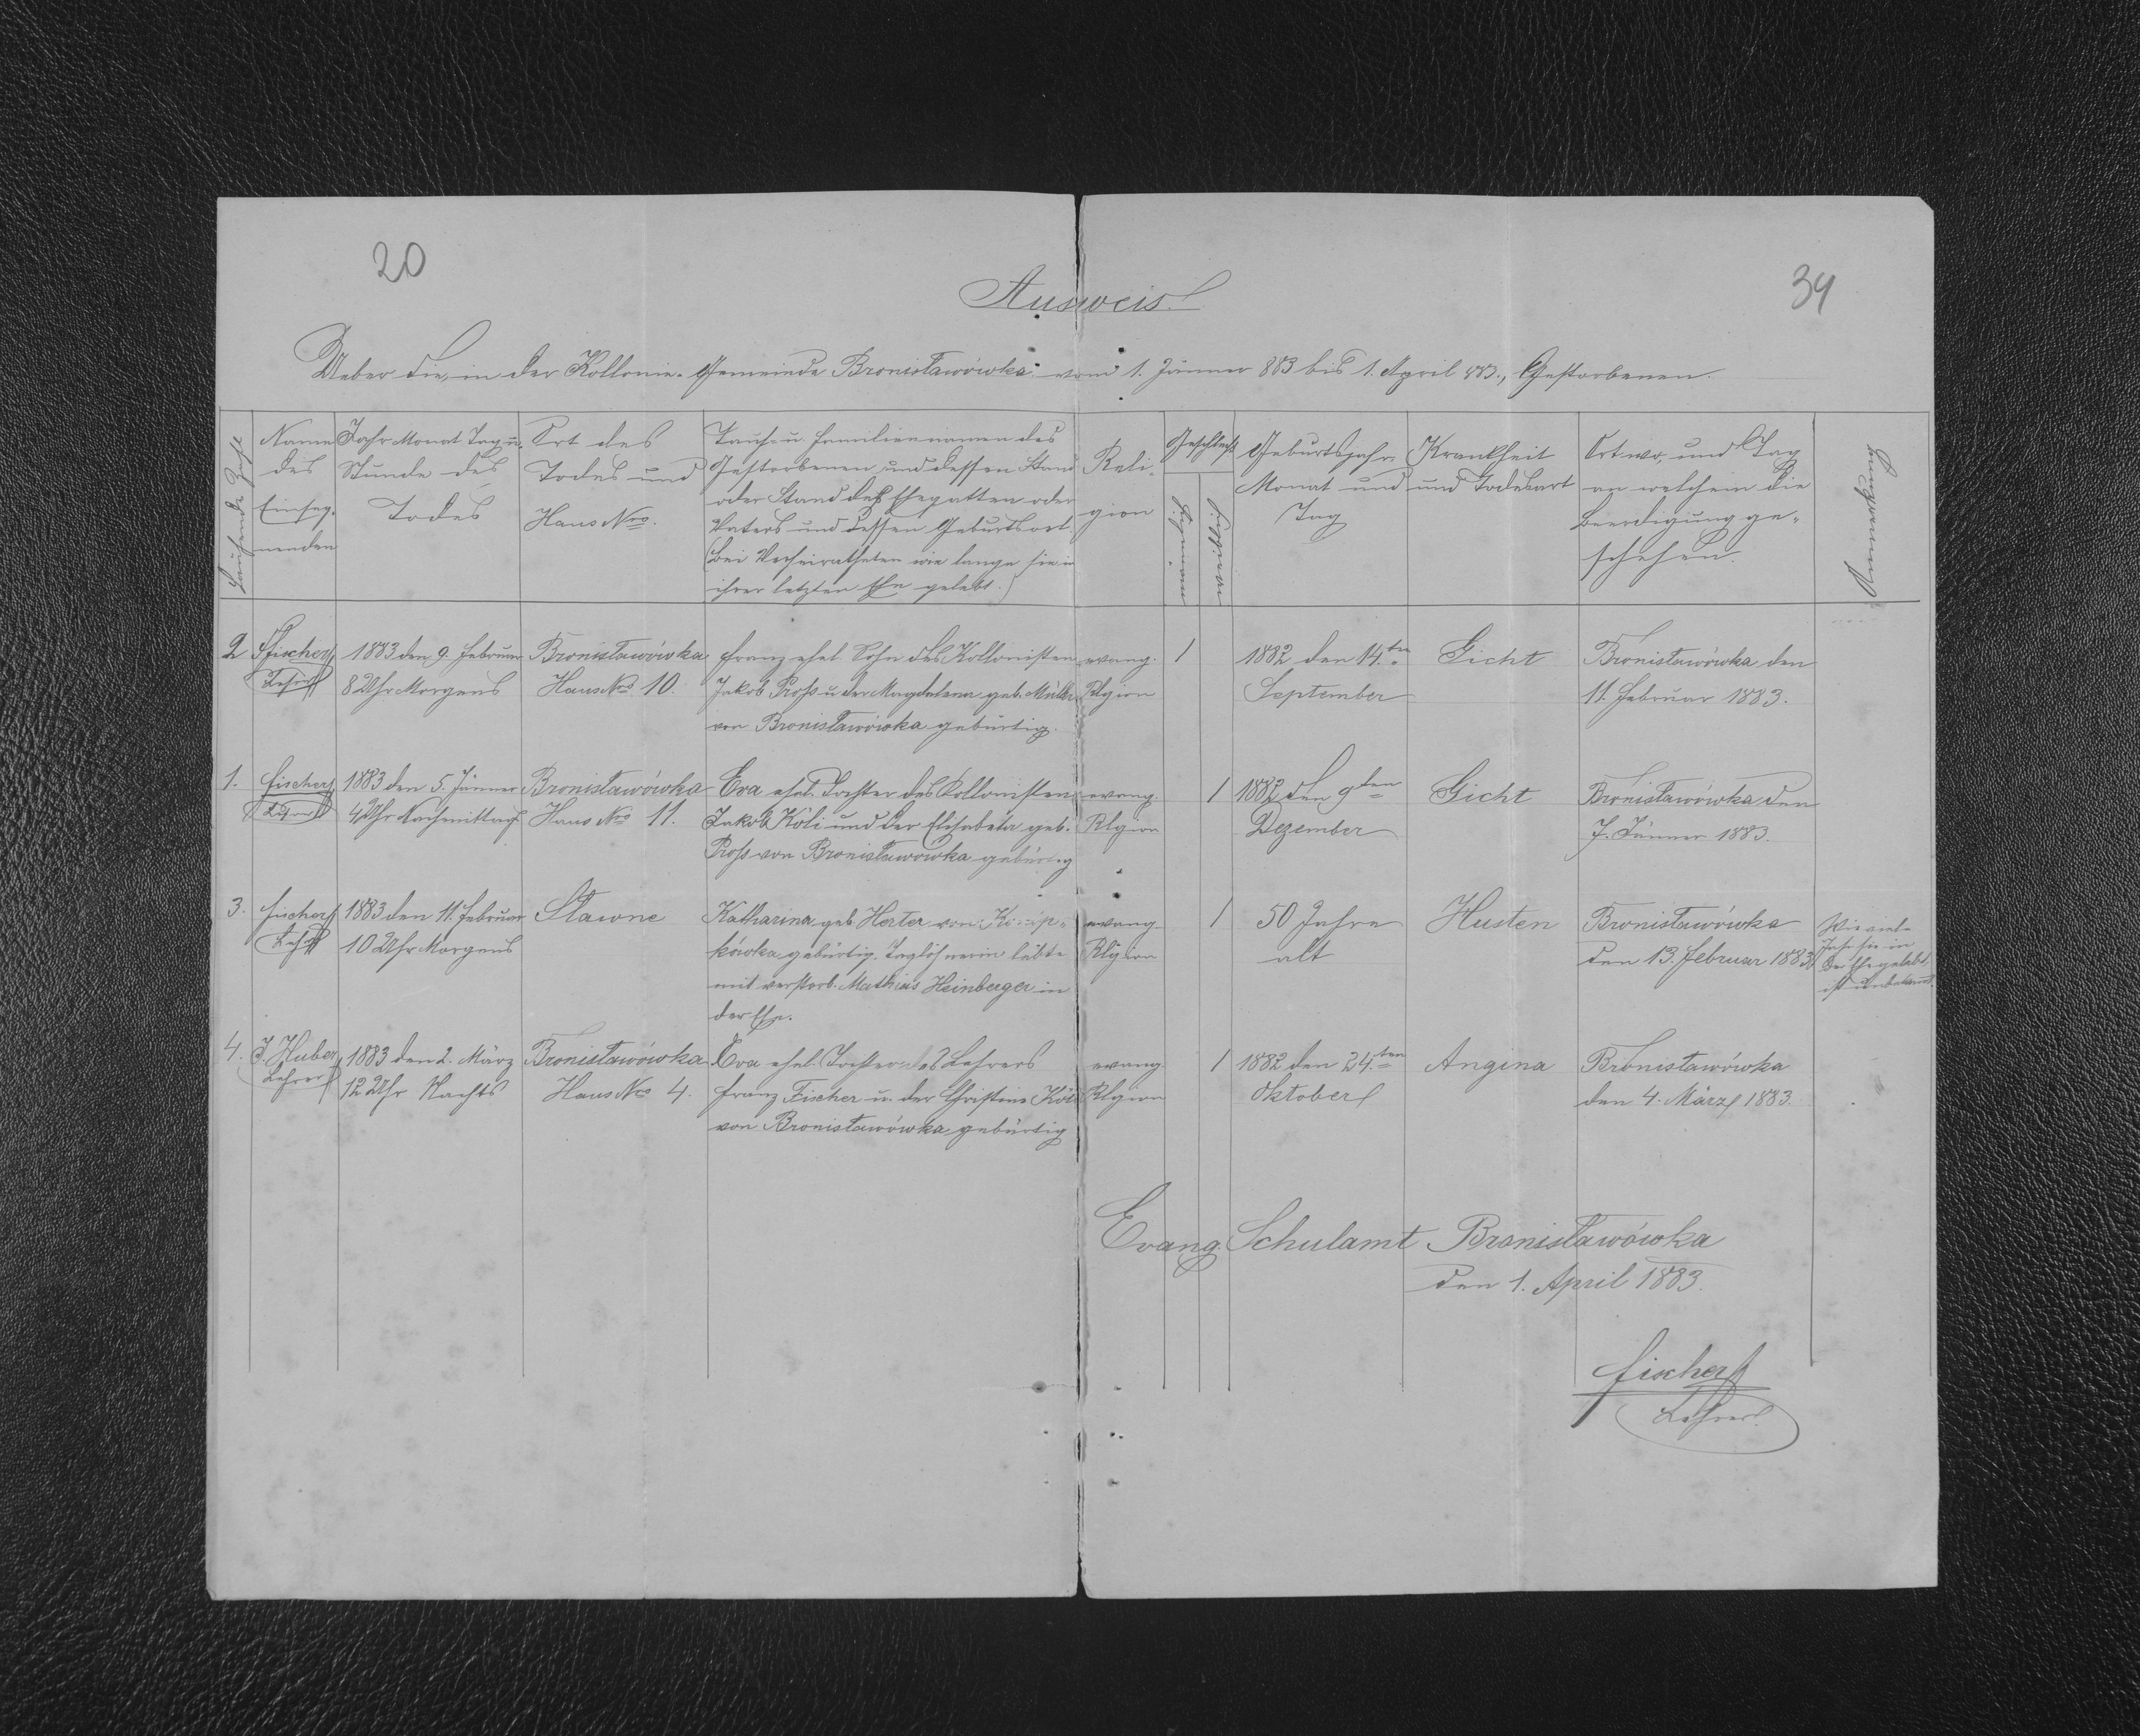 20
34
Ausweis
Ueber die, in der Kollonie-Gemeinde Bronisławówka vom 1. Jänner 883 bis 1. April 883., Gestorbenen.
Laufende Zahl
Name
des
Einseg-
nenden
Jahr Monat Tag u.
Stunde des
Todes
Ort des
Todes und
Haus Nro.
Tauf- u. Familiennamen des
Gestorbenen und dessen Stand
oder Stand des Ehegatten oder
Vaters und dessen Geburtsort
(bei Verheiratheten wie lange sie in
ihrer letzten Ehe gelebt.)
Reli-
gion
Geschlecht
männlich
weiblich
Geburtsjahr
Monat und
Tag
Krankheit
und Todesart
Ort wo, und Tag
an welchem die
Beerdigung ge-
schehen.
Anmerkung
2 Fischer 1883 den 9. Februar Bronisławówka Franz ehel. Sohn des Kollonisten evang. 1 1882 den 14.ten Gicht Bronisławówka den
Lehrer 8 Uhr Morgens Haus Nro 10. Jakob Proß u. der Magdalena geb. Müller Rlgion September 11. Februar 1883.
von Bronisławówka gebürtig.
1. Fischer 1883 den 5. Jänner Bronisławówka Eva ehel. Tochter des Kollonisten evang. 1 1882 den 9ten Gicht Bronisławówka den
Lehrer 4 Uhr Nachmittag Haus Nro 11. Jakob Köli und der Elisabeta geb. Rlgion Dezember 7. Jänner 1883.
Proß von Bronisławówka gebürtig
3. Fischer 1883 den 11. Februar Sławne Katharina geb. Herter von evang. 1 50 Jahre Husten Bronisławówka Wieviel
Lehr 10 Uhr Morgens kówka gebürtig. Taglöhnerin lebte Rlgion alt den 13. Februar 1883. Jahr sie in
mit verstorb. Mathias Heinberger in der Ehe gelebt,
der Ehe. ist unbekannt.
4. J. Huber 1883 den 2. März Bronisławówka Eva ehel. Tochter des Lehrers evang. 1 1882 den 24.ten Angina Bronisławówka
Lehrer 12 Uhr Nachts Haus Nro 4. Franz Fischer u. der Christine Köli Rlgion Oktober den 4. März 1883.
von Bronisławówka gebürtig
Evang. Schulamt Bronisławówka
den 1. April 1883.
Fischer
Lehrer